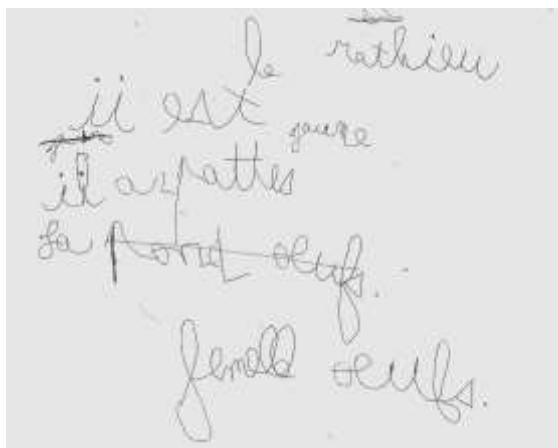 le rathieu
il est jaune
il a 2 pattes
La pond oeufs.
femelle oeufs.